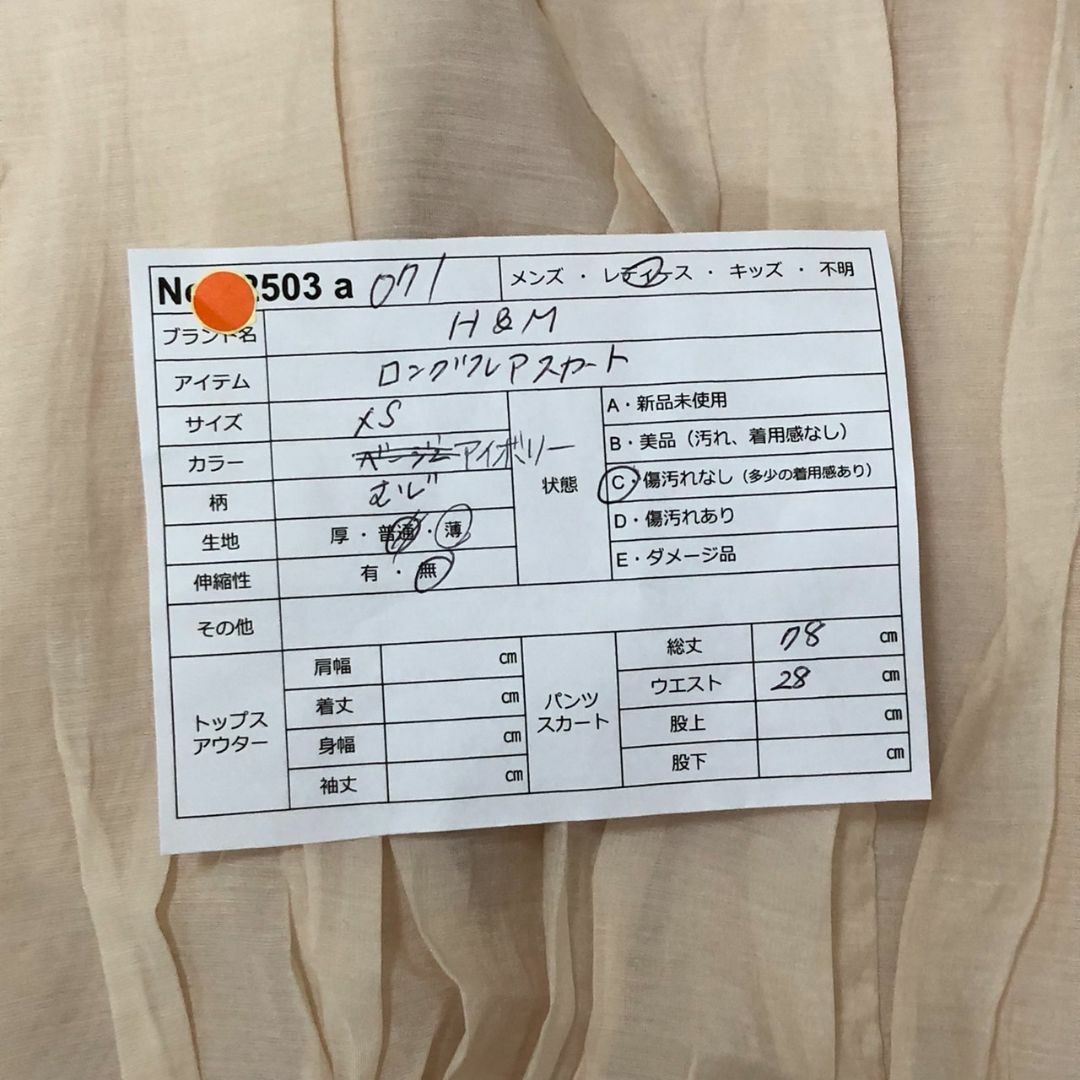 No 2503 a 071 メンズ ・ レディース ・ キッズ ・ 不明
ブランド名 H&M
アイテム ロングフレアスカート
サイズ XS
カラー ベージュ アイボリー
柄 むじ
生地 厚 ・ 普通 ・ 薄
伸縮性 有 ・ 無
状態
A・新品未使用
B・美品（汚れ、着用感なし）
C・傷汚れなし（多少の着用感あり）
D・傷汚れあり
E・ダメージ品
その他
トップス
アウター
肩幅 cm
着丈 cm
身幅 cm
袖丈 cm
パンツ
スカート
総丈 78 cm
ウエスト 28 cm
股上 cm
股下 cm